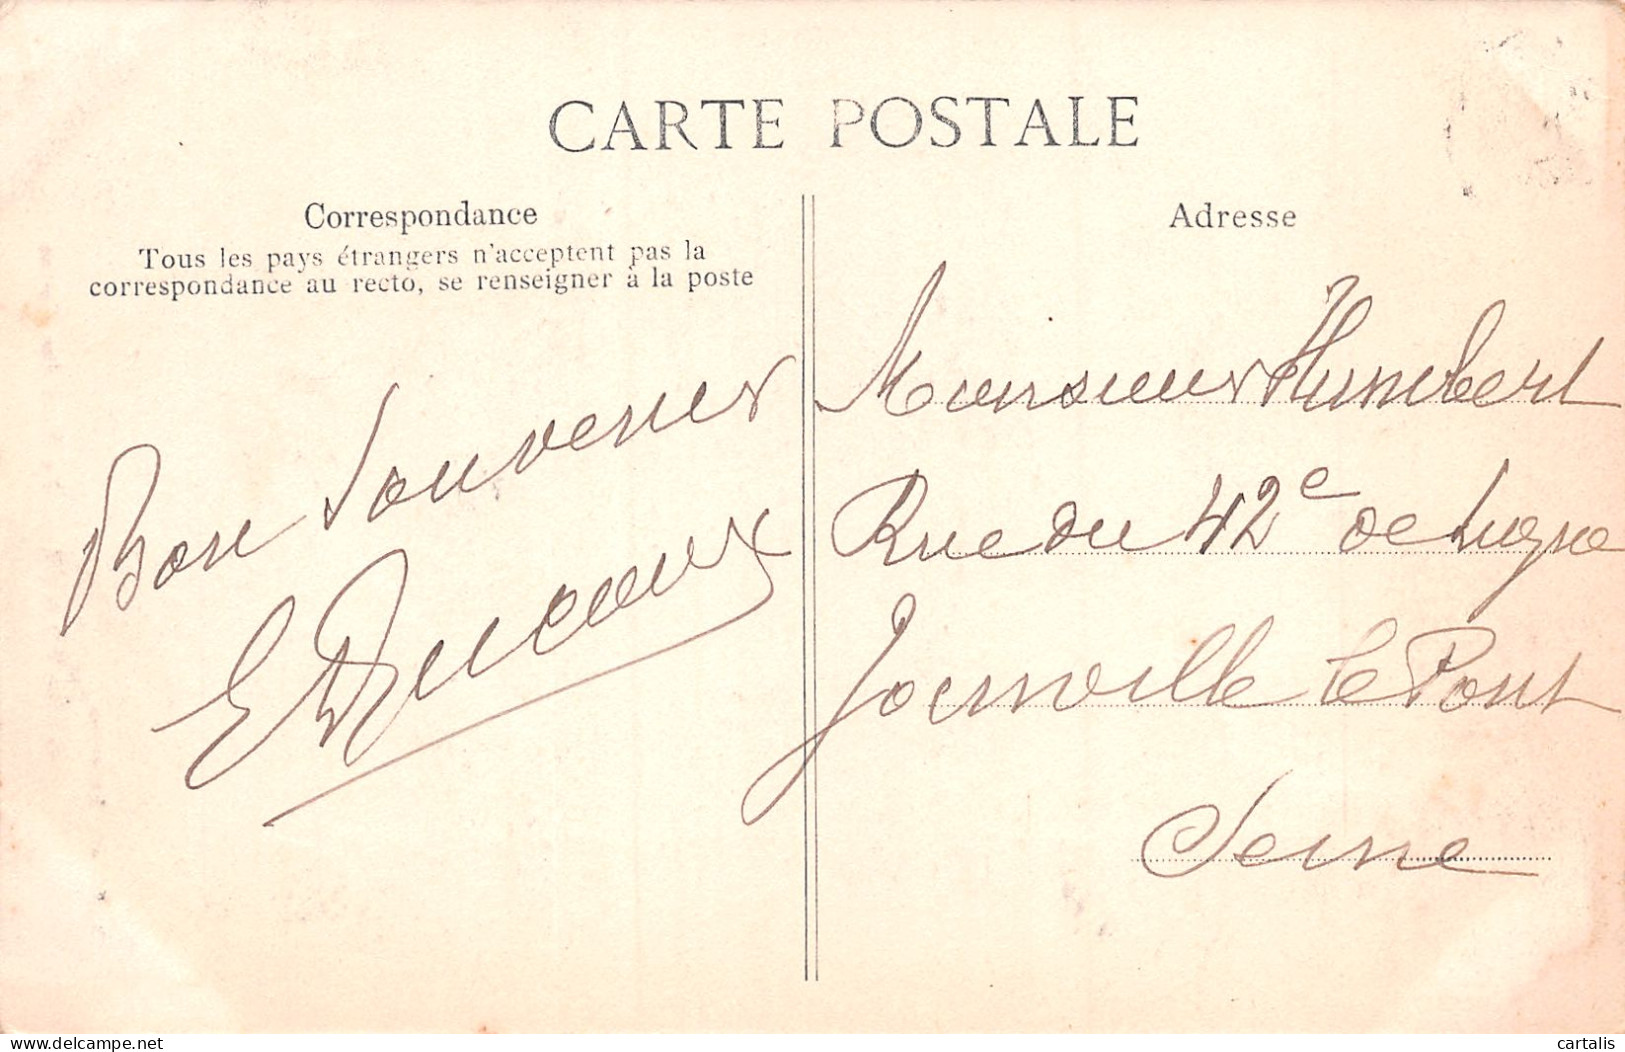 CARTE POSTALE
Correspondance
Tous les pays étrangers n'acceptent pas la
correspondance au recto, se renseigner à la poste
Bon Souvenir
Adresse
Monsieur Humbert
Rue du 42e de Ligne
Joinville le Pont
Seine
www.delcampe.net
cartalis